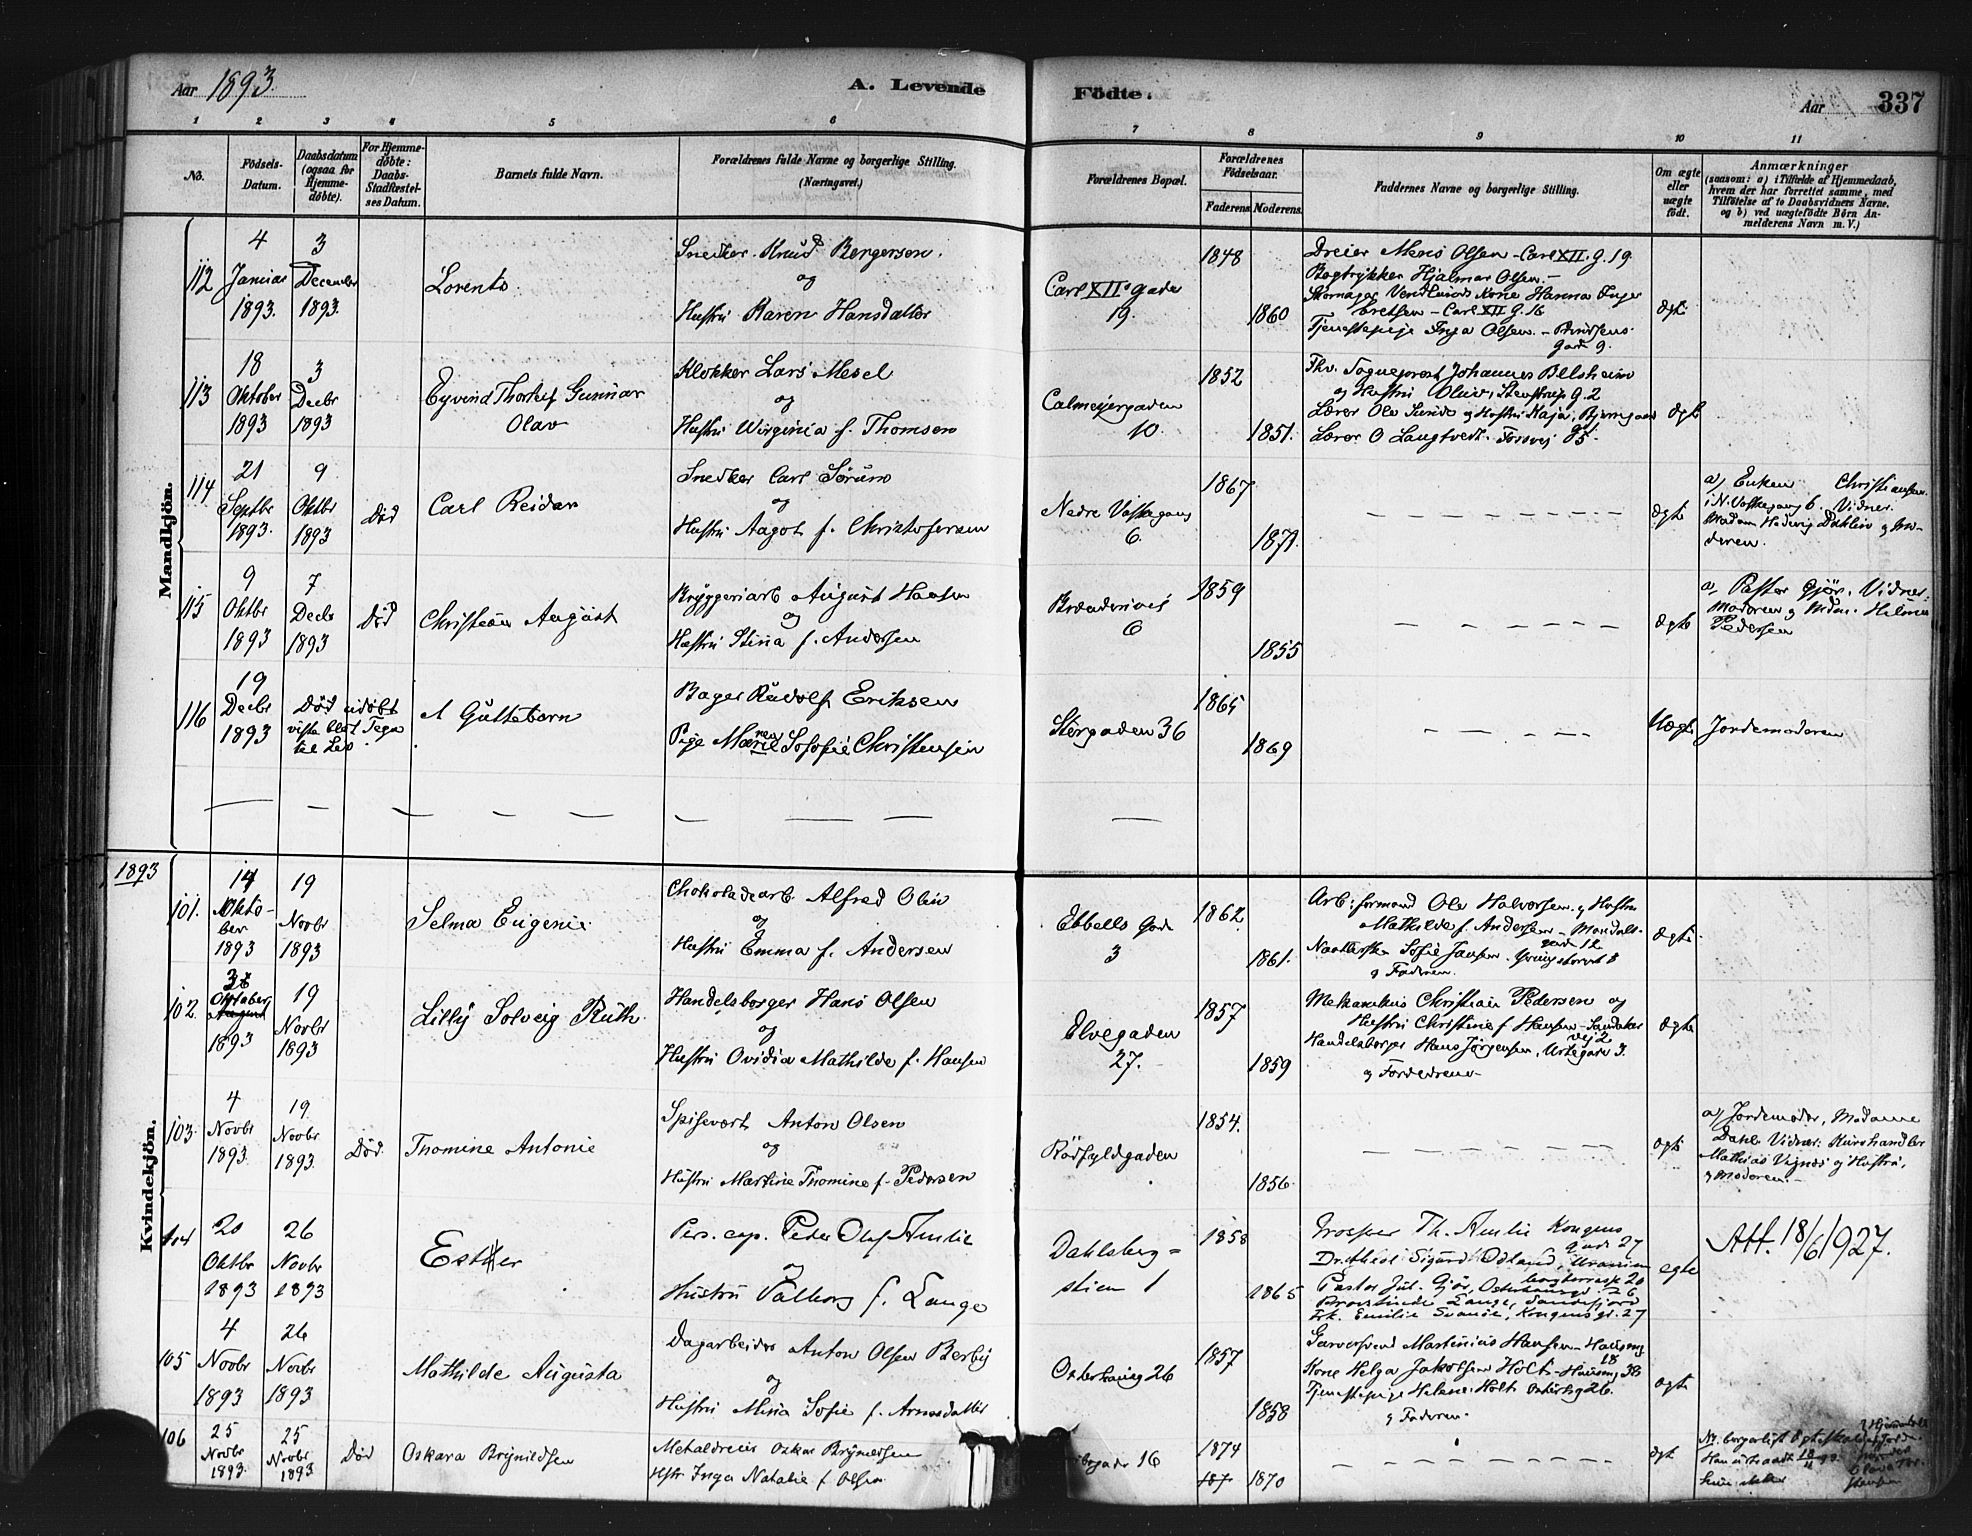 Aar 1893.
A. Levende
Födte.
Aar
337
1
2
3
4
5
6
7
8
9
10
11
No.
Födsels-
Datum.
Daabsdatum
(ogsaa for
Hjemme-
döbte).
For Hjemme-
döbte:
Daabs-
Stadfæstel-
ses Datum.
Barnets fulde Navn.
Forældrenes fulde Navne og borgerlige Stilling.
(Næringsvei.)
Forældrenes Bopæl.
Forældrenes
Födselsaar.
Faderens.
Moderens.
Faddernes Navne og borgerlige Stilling.
Om ægte
eller
uægte
födt.
Anmærkninger
(saasom: a) i Tilfælde af Hjemmedaab,
hvem der har forrettet samme, med
Tilföielse af to Daabsvidners Navne.
og b) ved uægtefödte Börn An-
melderens Navn m. V.)
Mandkjön.
112
4
Januar
1893.
3
December
1893.
Lorents
Snedker Knud Bergersen.
og
Hustru Karen Hansdatter
Carl XII's gade
19.
1848
1860
Dreier Olsen - Carl XII. G. 19
Bogtrykker Hjalmar Olsen -
Kone Hanna Inge
bretsen - Carl XII G. 16
Tjenestepige Inga Olsen. -
Gade 9.
Ægte
113
18
Oktober
1893
3
Decbr
1893
Eyvind Thorleif Gunnar
Olav
Klokker Lars Mesel
og
Hustru Wirginia f. Thomsen
Calmeyergaden
10.
1852
1851.
Fhv. Sogneprest Johannes Belsheim
og Hustru Olivia, Stenstrups g. 2
Lærer Ole Sunde og Hustru Kaja,
Lærer O Langtvedt.
Ægte
114
21
Septbr
1893.
9
Oktbr
1893
Død
Carl Reidar
Snedker Carl Sørum
og
Hustru Aagot f. Christofersen
Nedre Vaskegang
6.
1867
1871.
ægte
a) Enken Christiansen
i N. Vaskegang 6. Vidner.
Madam Hedvig Dahlin og Mo-
deren.
115
9
Oktbr
1893
7
Decbr
1893
Død
Christian August
Bryggeriarb August Hansen
og
Hustru Stina f. Andersen
6
1859
1855
ægte
a, Pastor Gjør. Vidner.
Moderen og Hilma
Pedersen
116
19
Decbr
1893
Død udøbt
viste blot Tegn
til Liv.
Et Guttebarn
Bager Rudolf Eriksen
Pige Maren Sofie Christensen
Storgaden 36
1865
1869
Uægte
Jordemoderen
1893
Kvindekjön.
101.
14
Okto-
ber
1893
19
Novbr
1893
Selma Eugenie
Chokoladearb Alfred Olin
og
Hustru Emma f. Andersen
Ebbells Gade
3
1862
1861.
Arb: formand Ole Halvorsen og Hustru
Mathilde f. Andersen - Mandals-
gade 12
Sofie Jansen. Youngstorvet 8
og Faderen.
Ægte.
102.
Oktober
1893
19
Novbr
1893
Lilly Solveig Ruth.
Handelsborger Hans Olsen
og
Hustru Ovidia Mathilde f. Hansen
Elvegaden
27.
1857
1859
Mekanikus Christian Pedersen og
Hustru Christine f Hansen - Sandaker
vej 2
Handelsborger Hans Jørgensen, Urtegade 3.
og Forældrene
Ægte
103.
4
Novbr
1893.
19
Novbr
1893.
Død.
Thomine Antonie
Spisevert Anton Olsen
og
Hustru Martine Thomine f. Pedersen
Rörfyldgaden
1854.
1856.
ægte
a) Jordemoder, Madame
Dahl. Vidner: Kurvhandler
Mathias Vignæs og Hustru,
og Moderen.
104
20
Oktbr
1893
26
Novbr
1893
Esther
Pers. cap. Peder Olaf Amlie
og
Hustru Valborg f. Lange
Dahlsberg=
stien 1
1858
1865
Grosserer Th. Amlie Kongens
Gade 27
Sigurd Ødland, Uranien
borgterrasse 20
Pastor Jul. Gjør, 26
Provstinde Lange, Sandefjord
Frk. Emilie Svanøe, Kongens g. 27
egte
Att. 18/6 1927.
105
4
Novbr
1893
26
Novbr
1893
Mathilde Augusta
Dagarbeider Anton Olsen Berby
og
Hustru Mina Sofie f. Arnesdatter
Osterhausg 26
1857
1858
Garversvend Martinius Hansen - Hausmg
18
Kone Helga Jakobsen Holt - Hausmg 38
Tjenestepige Helene Holt 26.
og Faderen.
ægte
106
25
Novbr
1893.
25
Novbr
1893
Død
Oskara Brynildsen
Metaldreier Oskar Brynildsen
Hstr. Inga Natalie f. Olsen
16
1874
1870
ægt